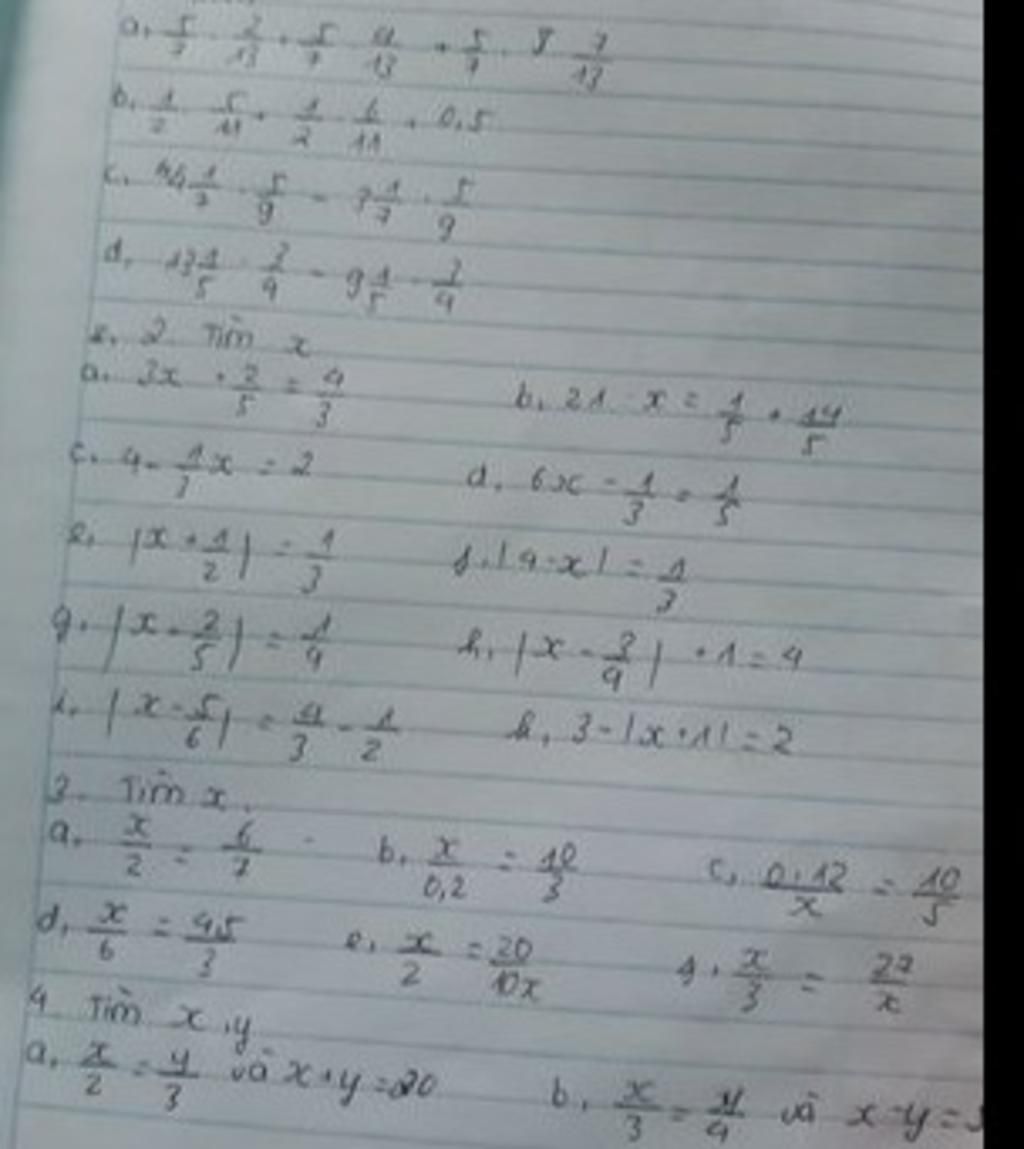 a. 5/7 · 2/13 + 5/7 · 4/13 + 5/7 · 7/13
b. 1/2 · 5/11 + 1/2 · 6/11 + 0,5
c. 44 1/7 · 5/9 - 7 1/7 · 5/9
d. 13 1/5 · 3/4 - 9 1/5 · 3/4
2. Tìm x
a. 3x + 2/5 = 4/3 b, 21 - x = 1/5 + 14/5
c. 4 - 1/3 x = 2 d, 6x - 1/3 = 1/5
e. |x + 1/2| = 1/3 f. |4 - x| = 1/3
g. |x - 2/5| = 1/4 h, |x - 3/4| + 1 = 4
i. |x - 5/6| = 4/3 - 1/2 k, 3 - |x + 1| = 2
3. Tìm x.
a. x/2 = 6/7 b, x/0,2 = 10/3 c, 0,12/x = 10/5
d, x/6 = 4,5/3 e, x/2 = 20/10x f. x/3 = 27/x
4. Tìm x,y
a. x/2 = y/3 và x + y = 20 b, x/3 = y/4 và x - y =